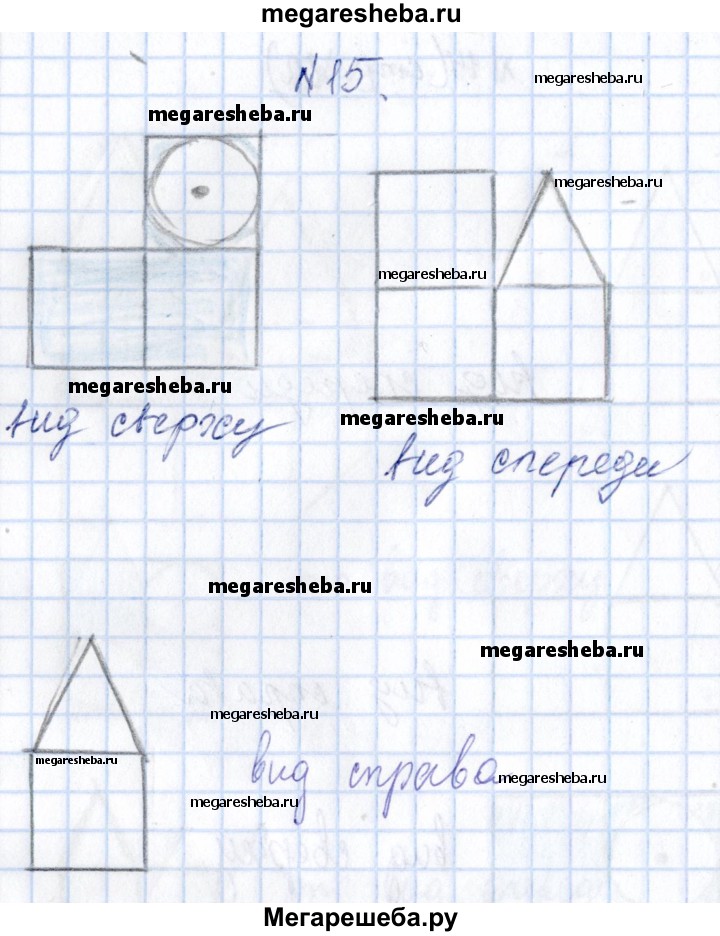 megaresheba.ru
N 15.
megaresheba.ru
megaresheba.ru
megaresheba.ru
megaresheba.ru
megaresheba.ru
megaresheba.ru
вид сверху
вид спереди
megaresheba.ru
megaresheba.ru
megaresheba.ru
megaresheba.ru
вид справа
megaresheba.ru
megaresheba.ru
Мегарешеба.ру